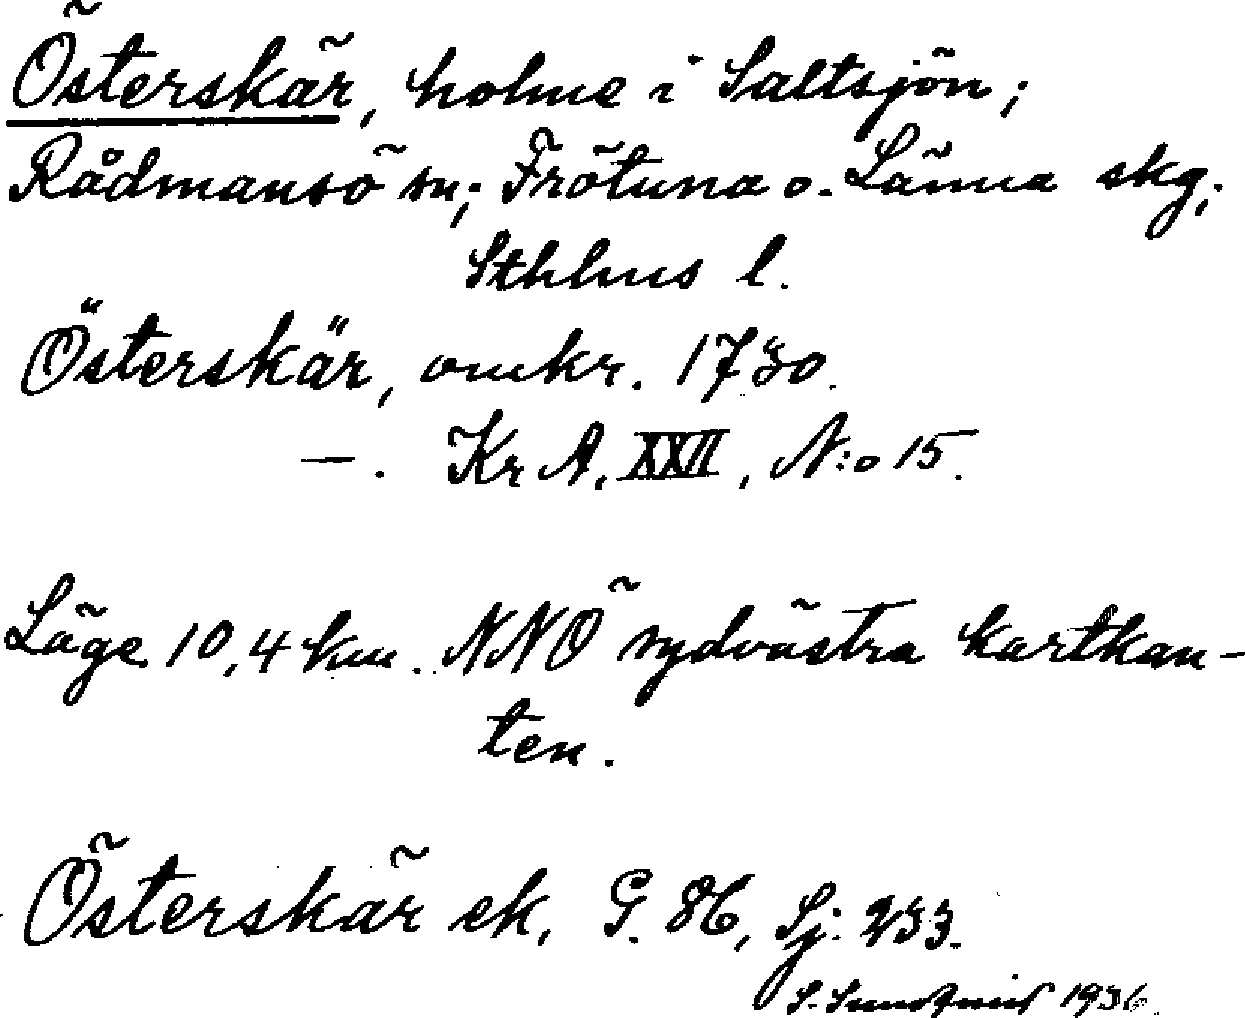 Österskär, holme i Saltsjön;
Rådmansö sn; Frötuna o. Länna skg;
Sthlms l.
Österskär, omkr. 1730.
—. Kr A, XXII, N:o 15.
Läge 10,4 km. NNO sydvästra kartkan-
ten.
Österskär ek, G. 86, Sj: 233.
S. Sundqvist 1936.